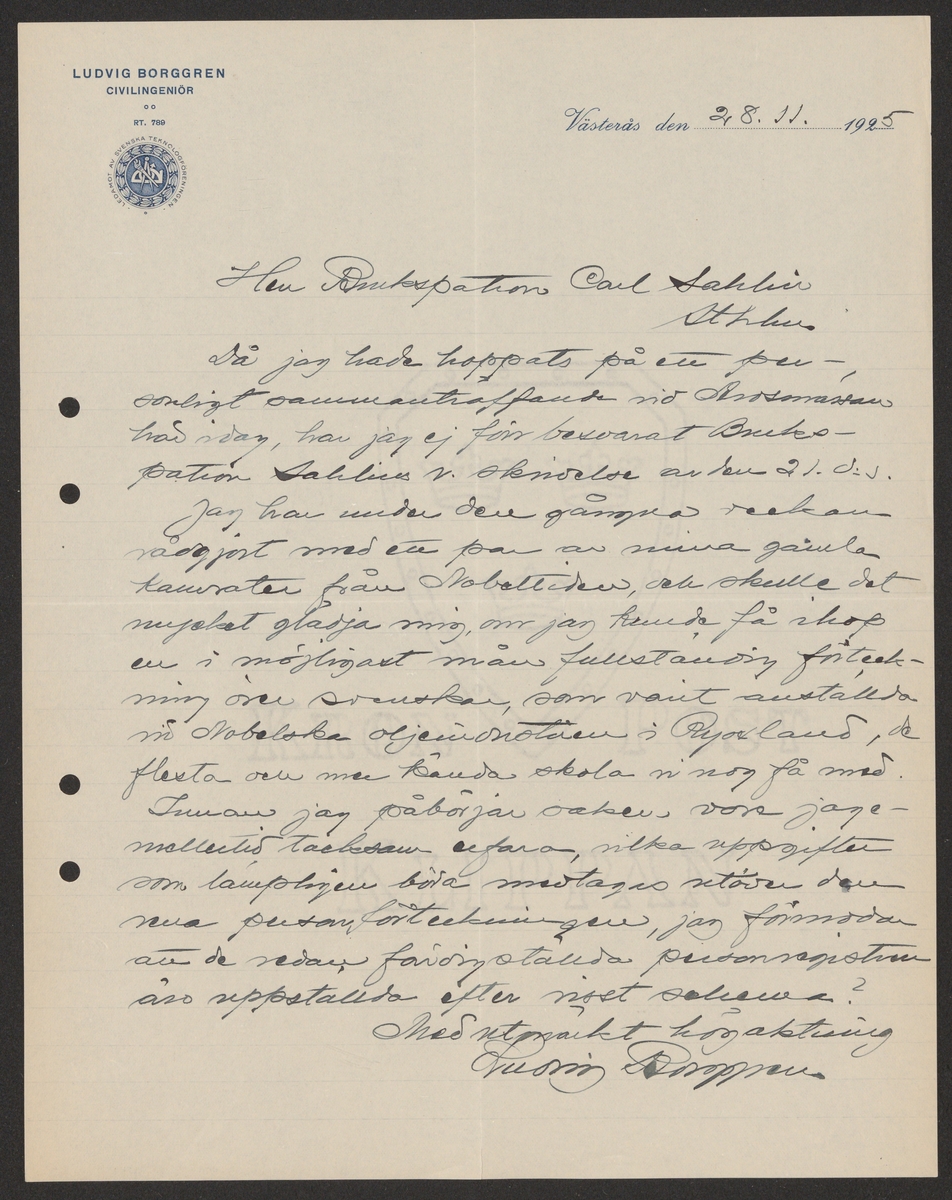 LUDVIG BORGGREN
CIVILINGENIÖR
RT. 789
LEDAMOT AV SVENSKA TEKNOLOGFÖRENINGEN
Västerås den 28. 11. 1925
Herr Brukspatron Carl Sahlin
Sthlm.
Då jag hade hoppats på ett per-
sonligt sammanträffande vid Arosmässan
häridag, har jag ej förr besvarat Bruks-
patron Sahlins v. skrivelse av den 21. d:s.
Jag har under den gångna veckan
rådgjort med ett par av mina gamla
kamrater från Nobeltiden, och skulle det
mycket glädja mig, om jag kunde få ihop
en i möjligast mån fullständig förteck-
ning över svenskar, som varit anställda
vid Nobelska oljeindustrien i Ryssland, de
flesta och mer kända skola vi nog få med.
Innan jag påbörjar saken vore jag e-
mellertid tacksam erfara, vilka uppgifter
som lämpligen böra medtagas utöver den
rena personförteckningen, jag förmodar
att de redan färdigställda personregistren
äro uppställda efter visst schema?
Med utmärkt högaktning
Ludvig Borggren